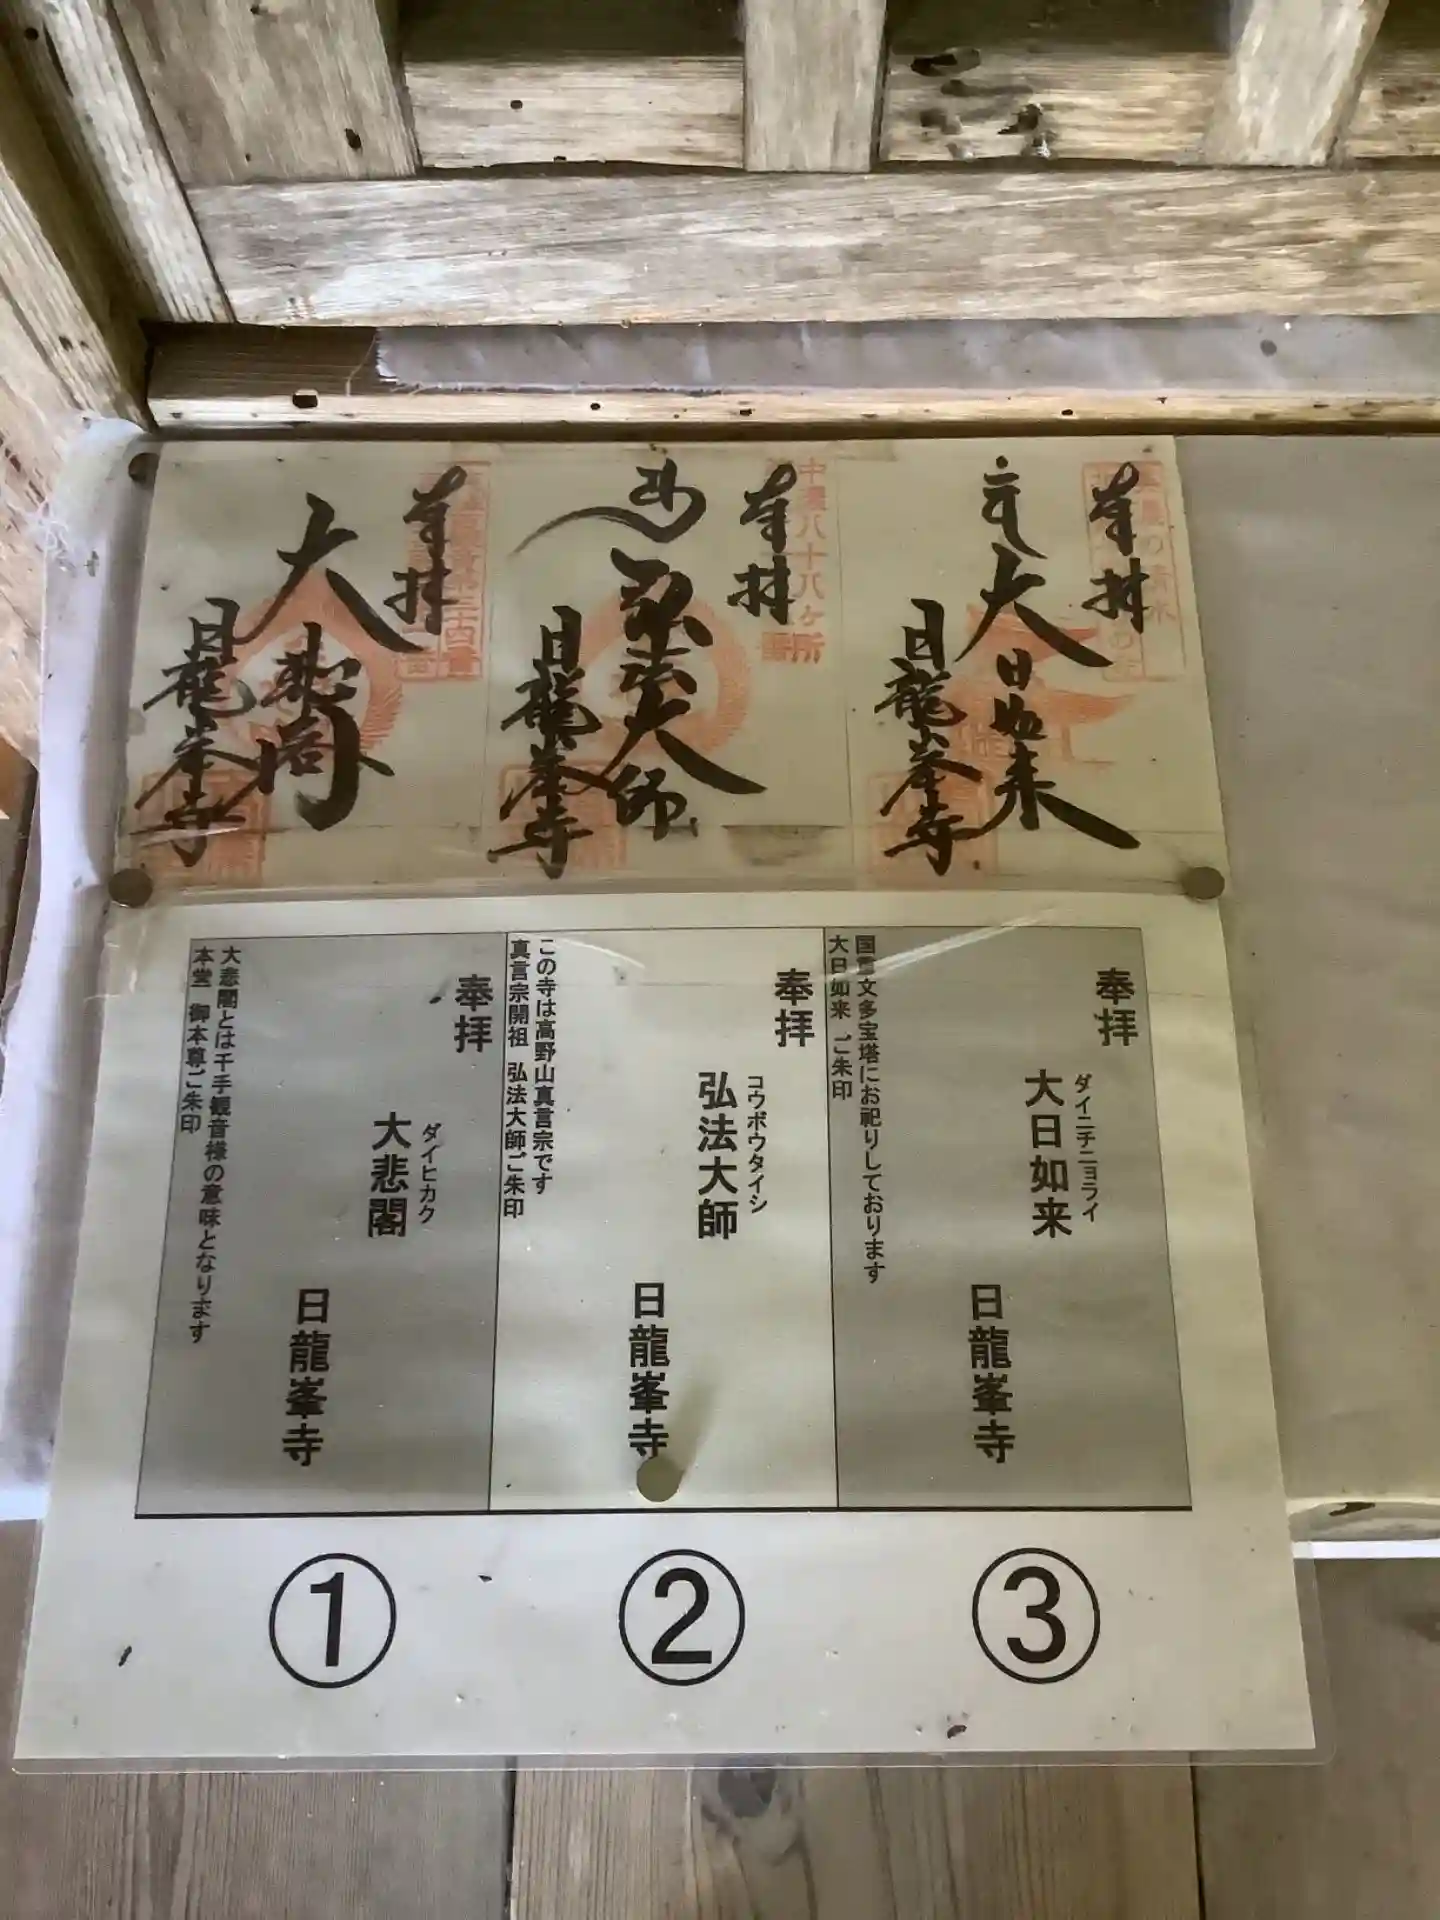 奉拝
大悲閣
日龍峯寺
奉拝
弘法大師
日龍峯寺
中濃八十八ヶ所
奉拝
大日如来
日龍峯寺
奉拝
ダイヒカク
大悲閣
日龍峯寺
大悲閣とは千手観音様の意味となります
本堂 御本尊ご朱印
①
奉拝
コウボウタイシ
弘法大師
日龍峯寺
この寺は高野山真言宗です
真言宗開祖 弘法大師ご朱印
②
奉拝
ダイニチニョライ
大日如来
日龍峯寺
国重文多宝塔にお祀りしております
大日如来 ご朱印
③